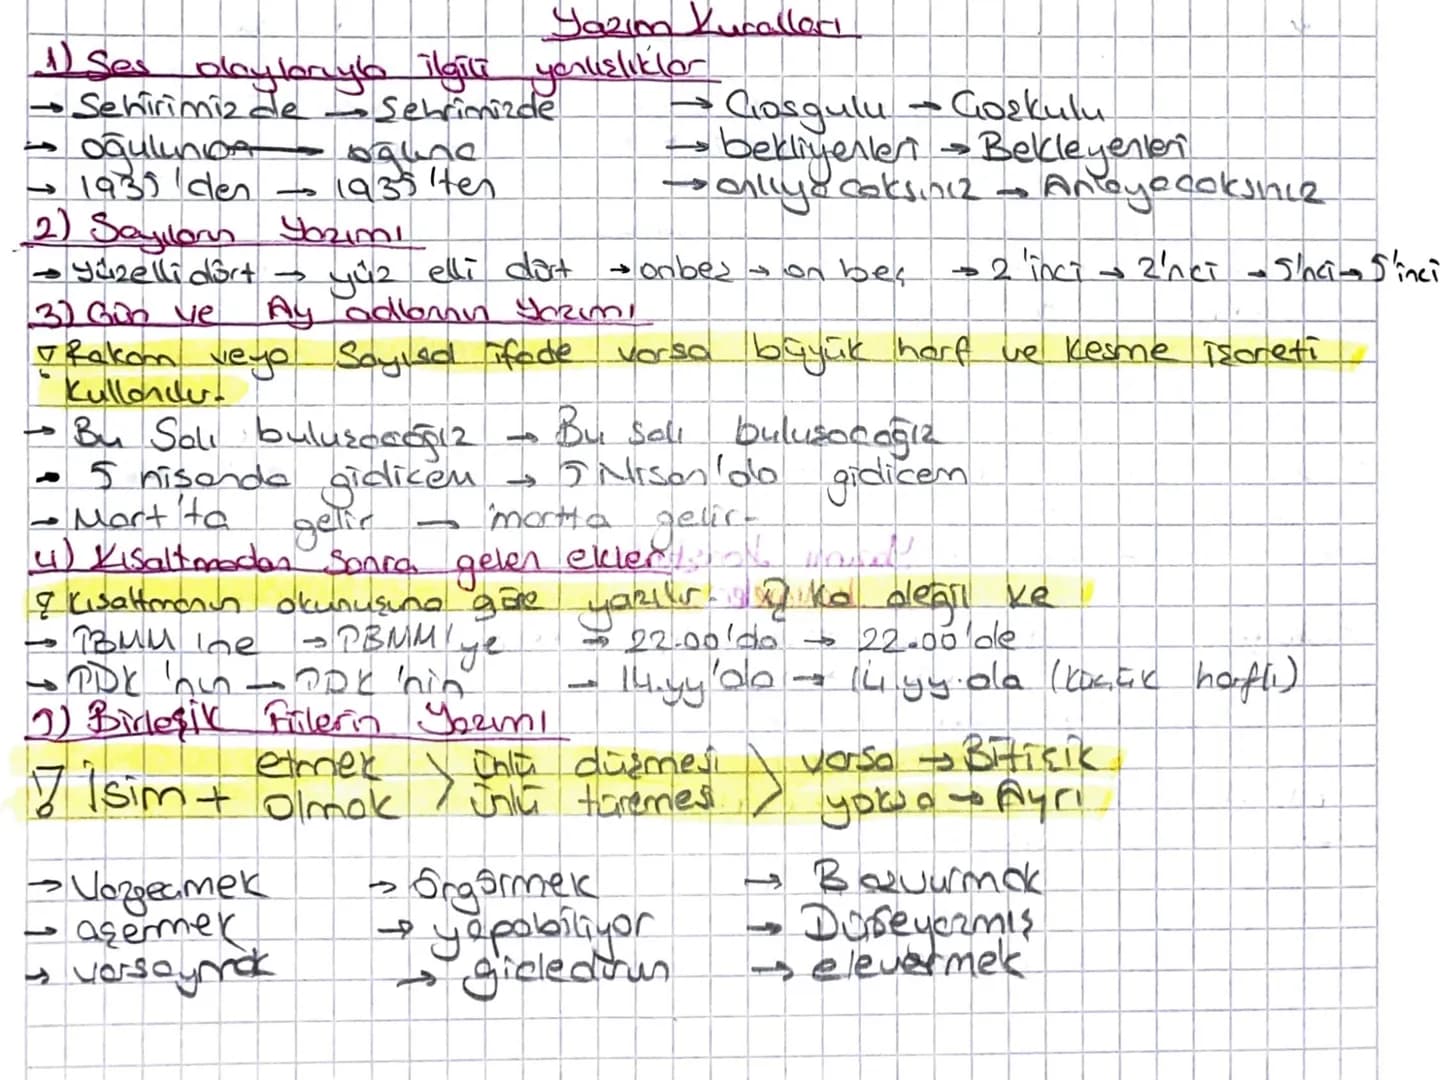 Yazım Kuralları
1) Ses olaylarıyla ilgili yanlışlıklar
→ Şehirimizde → Şehrimizde → Coşgulu → Coşkulu
→ oğuluna → oğluna → bekliyenleri → Bekleyenleri
→ 1935'den → 1935'ten → anlıyacaksınız → Anlayacaksınız
2) Sayıların Yazımı
→ yüzellidört → yüz elli dört → onbeş → on beş → 2'inci → 2'nci → 5'nci → 5'inci
3) Gün ve Ay adlarının Yazımı
Rakam veya Sayısal ifade varsa büyük harf ve kesme işareti
kullanılır.
→ Bu Salı buluşacağız → Bu salı buluşacağız
→ 5 nisanda gidicem → 5 Nisan'da gidicem
→ Mart'ta gelir → martta gelir
4) Kısaltmadan Sonra gelen ekler
Kısaltmanın okunuşuna göre yazılır. ka değil ke
→ TBMM'ine → TBMM'ye → 22.00'da → 22.00'de
→ TDK'nın → TDK'nin → 14.yy'da → 14.yy.da (küçük harfli)
5) Birleşik Fiilerin Yazımı
etmek > ünlü düşmesi > varsa → Bitişik
İsim + olmak > ünlü türemesi > yoksa → Ayrı
→ Vazgeçmek → Öngörmek → Başvurmak
→ yapabiliyor → Düşeyazmış
→ varsaymak → gidedurun → elevermek